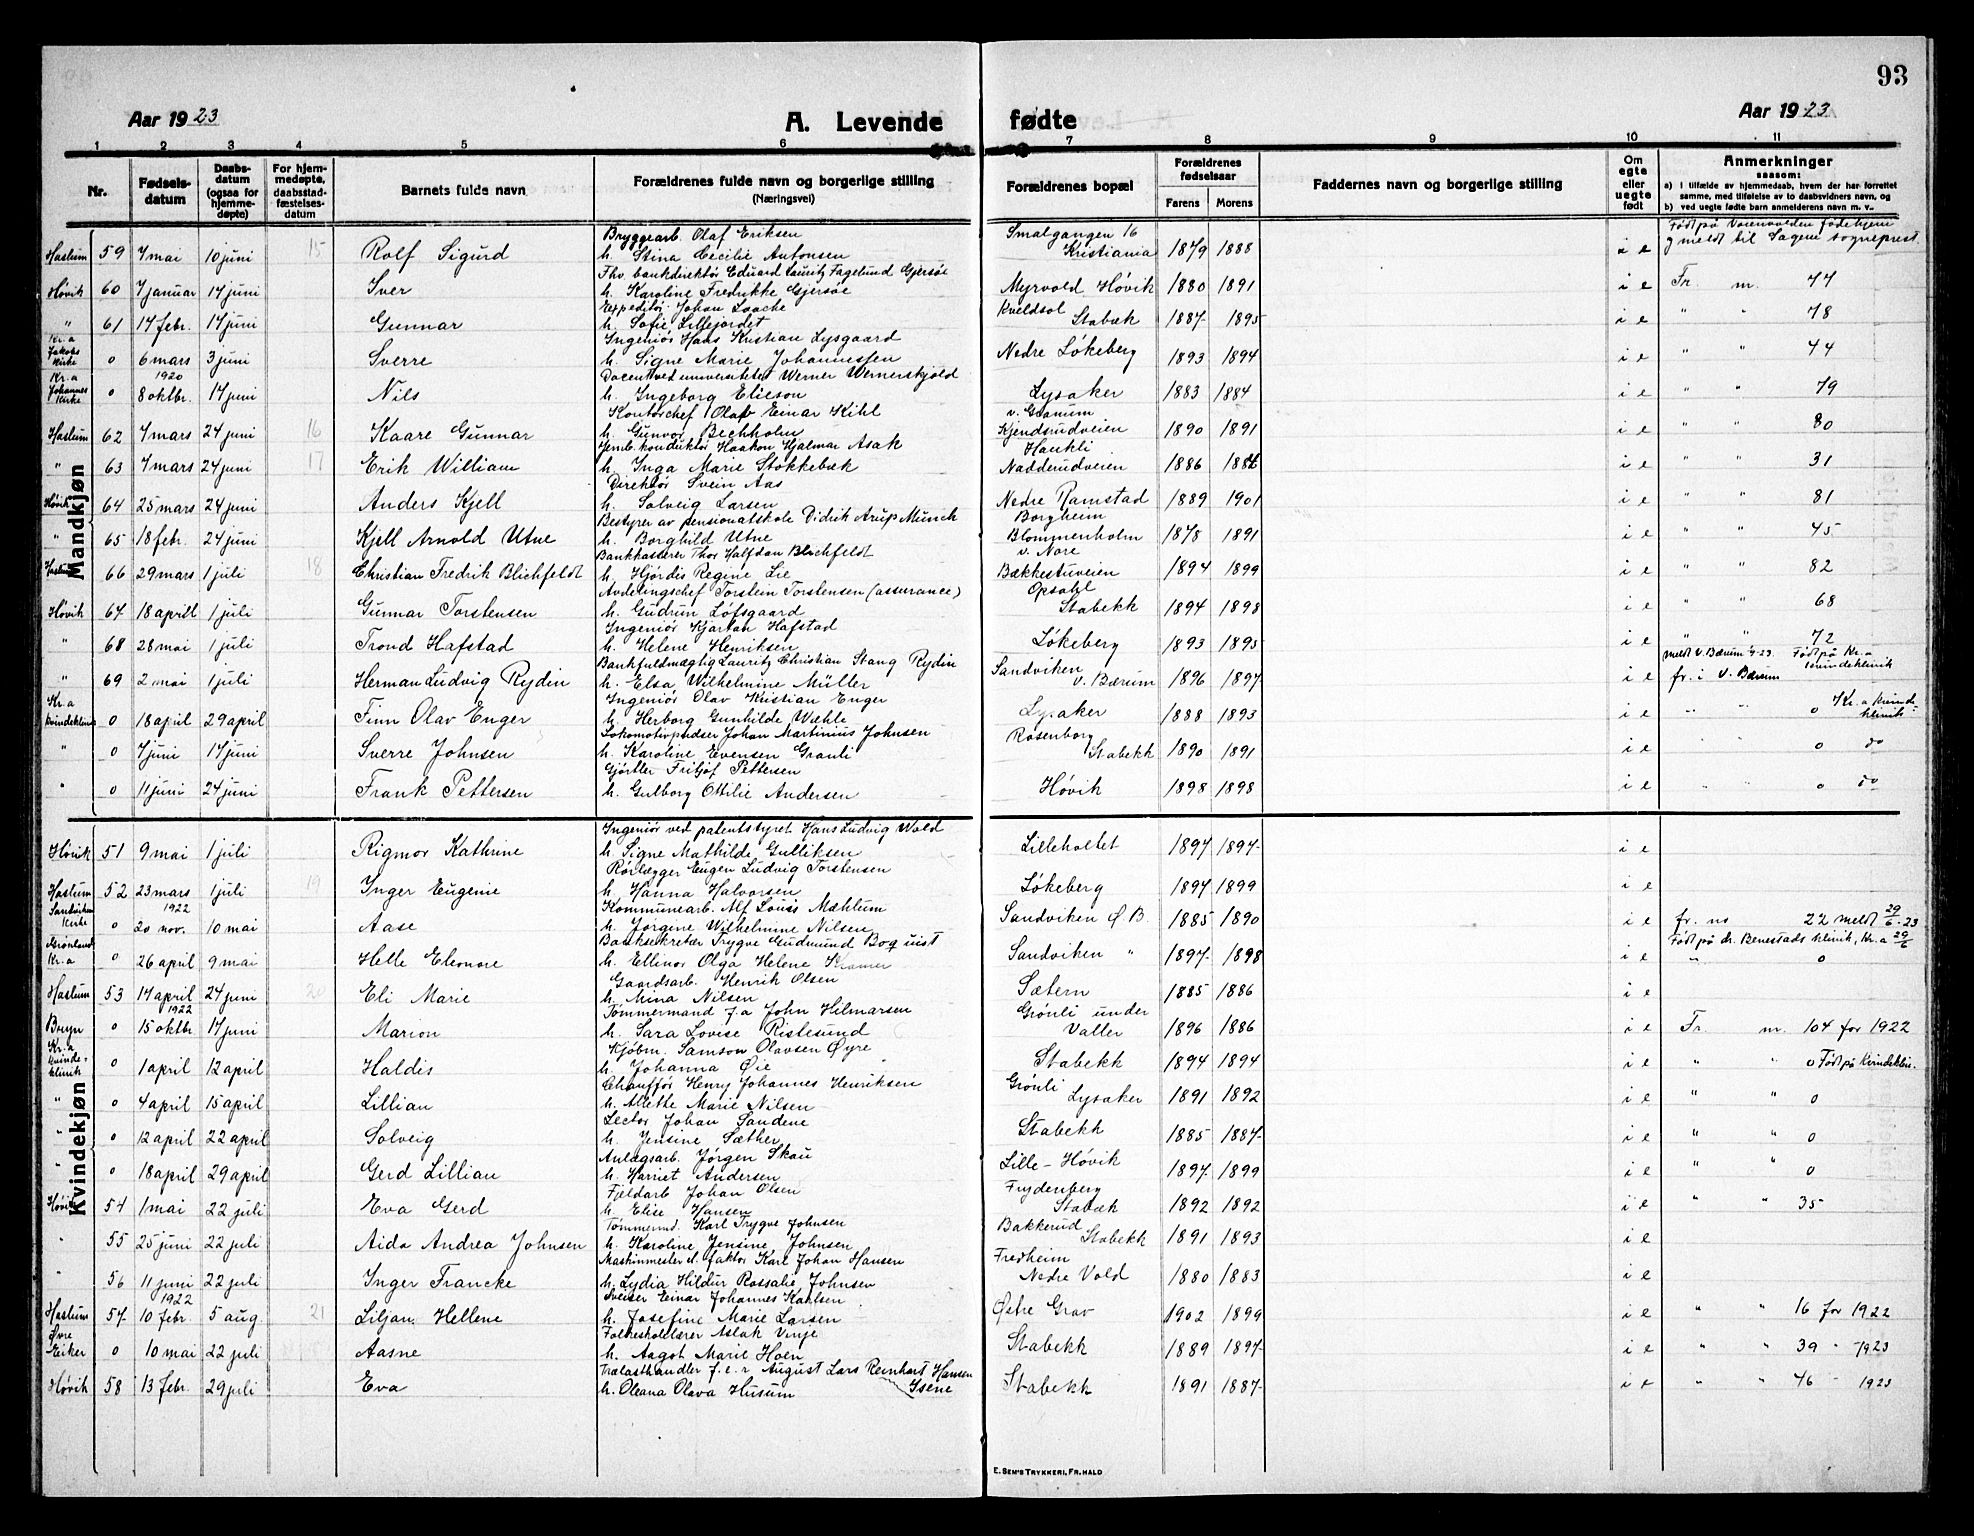 93
Aar 1923 A. Levende fødte Aar 1923
1 2 3 4 5 6 7 8 9 10 11
Nr. Fødsels-datum Daabs-datum (ogsaa for hjemme-døpte) For hjem-medøpte, daabsstad-fæstelses-datum Barnets fulde navn Forældrenes fulde navn og borgerlige stilling (Næringsvei) Forældrenes bopæl Forældrenes fødselsaar Farens Morens Faddernes navn og borgerlige stilling Om egte eller uegte født Anmerkninger saasom: a) i tilfælde av hjemmedaab, hvem der har forrettet samme, med tilføielse av to daabsvidners navn, og b) ved uegte født barn anmelderens navn m. v.
Mandkjøn
Haslum 59 7 mai 10 juni 15 Rolf Sigurd Bryggearb. Olaf Eriksen h. Stina Cecilie Antonsen Smalgangen 16 Kristiania 1879 1888 i e Født på Voienvolden fødehjem meldt til Sagene sogneprest.
Høvik 60 7 januar 14 juni Iver Fhv. bankdirektør Eduard Lauritz Fagelund Gjersøe h. Karoline Fredrikke Gjersøe Myrvold Høvik 1880 1891 i e Fr. m. 77
" 61 14 febr. 14 juni Gunnar Expeditør Johan Laache h. Sofie Lillejordet Kveldsol Stabæk 1887 1895 i e " " 78
Kr.a Jakobs Kirke 0 6 mars 3 juni Sverre Ingeniør Hans Kristian Lysgaard h. Signe Marie Johannessen Nedre Løkeberg 1893 1894 i e " " 44
Kr.a Johannes Kirke 0 1920 8 oktbr. 14 juni Nils Docent ved universitetet Werner Wernerskjold h. Ingeborg Elieson Lysaker 1883 1884 i e " " 79
Haslum 62 7 mars 24 juni 16 Kaare Gunnar Kontorchef Olav Einar Kihl h. Gunvor Bechholm v. Granum Kjendsrudveien 1890 1891 i e " " 80
" 63 7 mars 24 juni 17 Erik William Jernb. konduktør Haakon Hjalmar Asak h. Inga Marie Stokkebæk Haukli Nadderudveien 1886 1886 i e " " 31
Høvik 64 25 mars 24 juni Anders Kjell Direktør Svein Aas h. Solveig Larsen Nedre Ramstad 1889 1901 i e " " 81
" 65 18 febr. 24 juni Kjell Arnold Utne Bestyrer av pensionatskole Didrik Arup Munch h. Borghild Utne Borgheim Blommenholm 1878 1891 i e " " 45
Haslum 66 29 mars 1 juli 18 Christian Fredrik Blichfeldt Bankkasserer Thor Halfdan Blichfeldt h. Hjördis Regine Lie v. Nore Bækkestuveien 1894 1899 i e " " 82
Høvik 67 18 april 1 juli Gunnar Torstensen Avdelingschef Torstein Torstensen (assurance) h. Gudrun Løfsgaard Opsahl Stabekk 1894 1898 i e " " 68
" 68 28 mai 1 juli Trond Hafstad Ingeniør Kjartan Hafstad h. Helene Henriksen Løkeberg 1893 1895 i e " " 72
" 69 2 mai 1 juli Herman Ludvig Rydin Bankfuldmægtig Lauritz Christian Stang Rydin h. Elsa Wilhelmine Müller Sandviken v. Bærum 1896 1897 i e meldt V. Bærum Født på Kr.a kvindeklinik fr. i V. Bærum
Kr.a kvindeklinik 0 18 april 29 april Finn Olav Enger Ingeniør Olav Kristian Enger h. Herborg Gunhilde Wæhle Lysaker 1888 1893 i e " " 0 Kr.a kvindeklinik
" 0 7 juni 17 juni Sverre Johnsen Lokomotivpudser Johan Martinius Johnsen h. Karoline Evensen Granli Rosenborg Stabekk 1890 1891 i e " " 0 do
" 0 11 juni 24 juni Frank Pettersen Gjørtler Fritjof Pettersen h. Gulborg Ottilie Andersen Høvik 1898 1898 i e " " 0 do
Kvindekjøn
Høvik 51 9 mai 1 juli Rigmor Kathrine Ingeniør ved patentstyret Hans Ludvig Wold h. Signe Mathilde Gulliksen Lilleholtet 1897 1897 i e
Haslum 52 23 mars 1 juli 19 Inger Eugenie Rørlægger Eugen Ludvig Torstensen h. Hanna Halvorsen Løkeberg 1897 1899 i e
Sandviken Kirke 0 1922 20 nov. 10 mai Aase Kommunearb. Alf Louis Mæhlum h. Jørgine Wilhelmine Nilsen Sandviken Ø. B. 1885 1890 i e fr. no 22 meldt 29/6-23
Grønland Kr.a 0 26 april 9 mai Helle Eleonore Banksekretær Trygve Gudmund h. Ellinor Olga Helene Kramer Sandviken " 1897 1898 i e Født på dr. Benestads klinik, Kr.a 29/6 " 0
Haslum 53 14 april 24 juni 20 Eli Marie Gaardsarb. Henrik Olsen h. Mina Nilsen Sætern 1885 1886 i e
Bryn 0 1922 15 oktbr 17 juni Marion Tømmermand f.a John Hilmarsen h. Sara Lovise Ristesund Grønli under Valler 1896 1886 i e Fr. m. 104 for 1922
Kr.a kvindeklinik 0 1 april 12 april Haldis Kjøbm. Samson Olavsen Øyre h. Johanna Øie Stabekk 1894 1894 i e " " 0 Født på kvindeklin.
" 0 4 april 15 april Lillian Chauffør Henry Johannes Henriksen h. Alette Marie Nilsen Grønli Lysaker 1891 1892 i e " " 0
" 0 12 april 22 april Solveig Lector Johan Sandene h. Jensine Sæther Stabekk 1885 1887 i e " " 0
" 0 18 april 29 april Gerd Lillian Anlægsarb. Jørgen Skau h. Harriet Andersen Lille-Høvik 1897 1899 i e " " 0
Høvik 54 1 mai 22 juli Eva Gerd Fjeldarb Johan Olsen h. Elise Hansen Frydenberg Stabæk 1892 1892 i e " " 35
" 55 25 juni 22 juli Aida Andrea Johnsen Tømmermd. Karl Trygve Johnsen h. Karoline Jensine Johnsen Bakkerud Stabekk 1891 1893 i e
" 56 11 juni 22 juli Inger Francke Maskinmester d. faktor Karl Johan Hansen h. Lydia Hildur Rossalie Johnsen Fredheim Nedre Vold 1880 1883 i e
Haslum 57 1922 10 febr. 5 aug. 21 Liljan Hellene Sveiser Einar Johannes Karlsen h. Josefine Marie Larsen Østre Grav 1902 1899 i e " " 16 for 1922
Øvre Eiker 0 10 mai 22 juli Aasne Folkeskolelærer Aslak Vinje h. Aagot Marie Hoen Stabekk 1889 1897 i e " " 39 " 1923
Høvik 58 13 febr. 29 juli Eva Trælasthandler f.e.r August Lars Reinhart Hansen Isene h. Oleana Olava Husum Stabekk 1891 1887 i e " " 46 - 1923
E. SEM'S TRYKKERI, FR.HALD